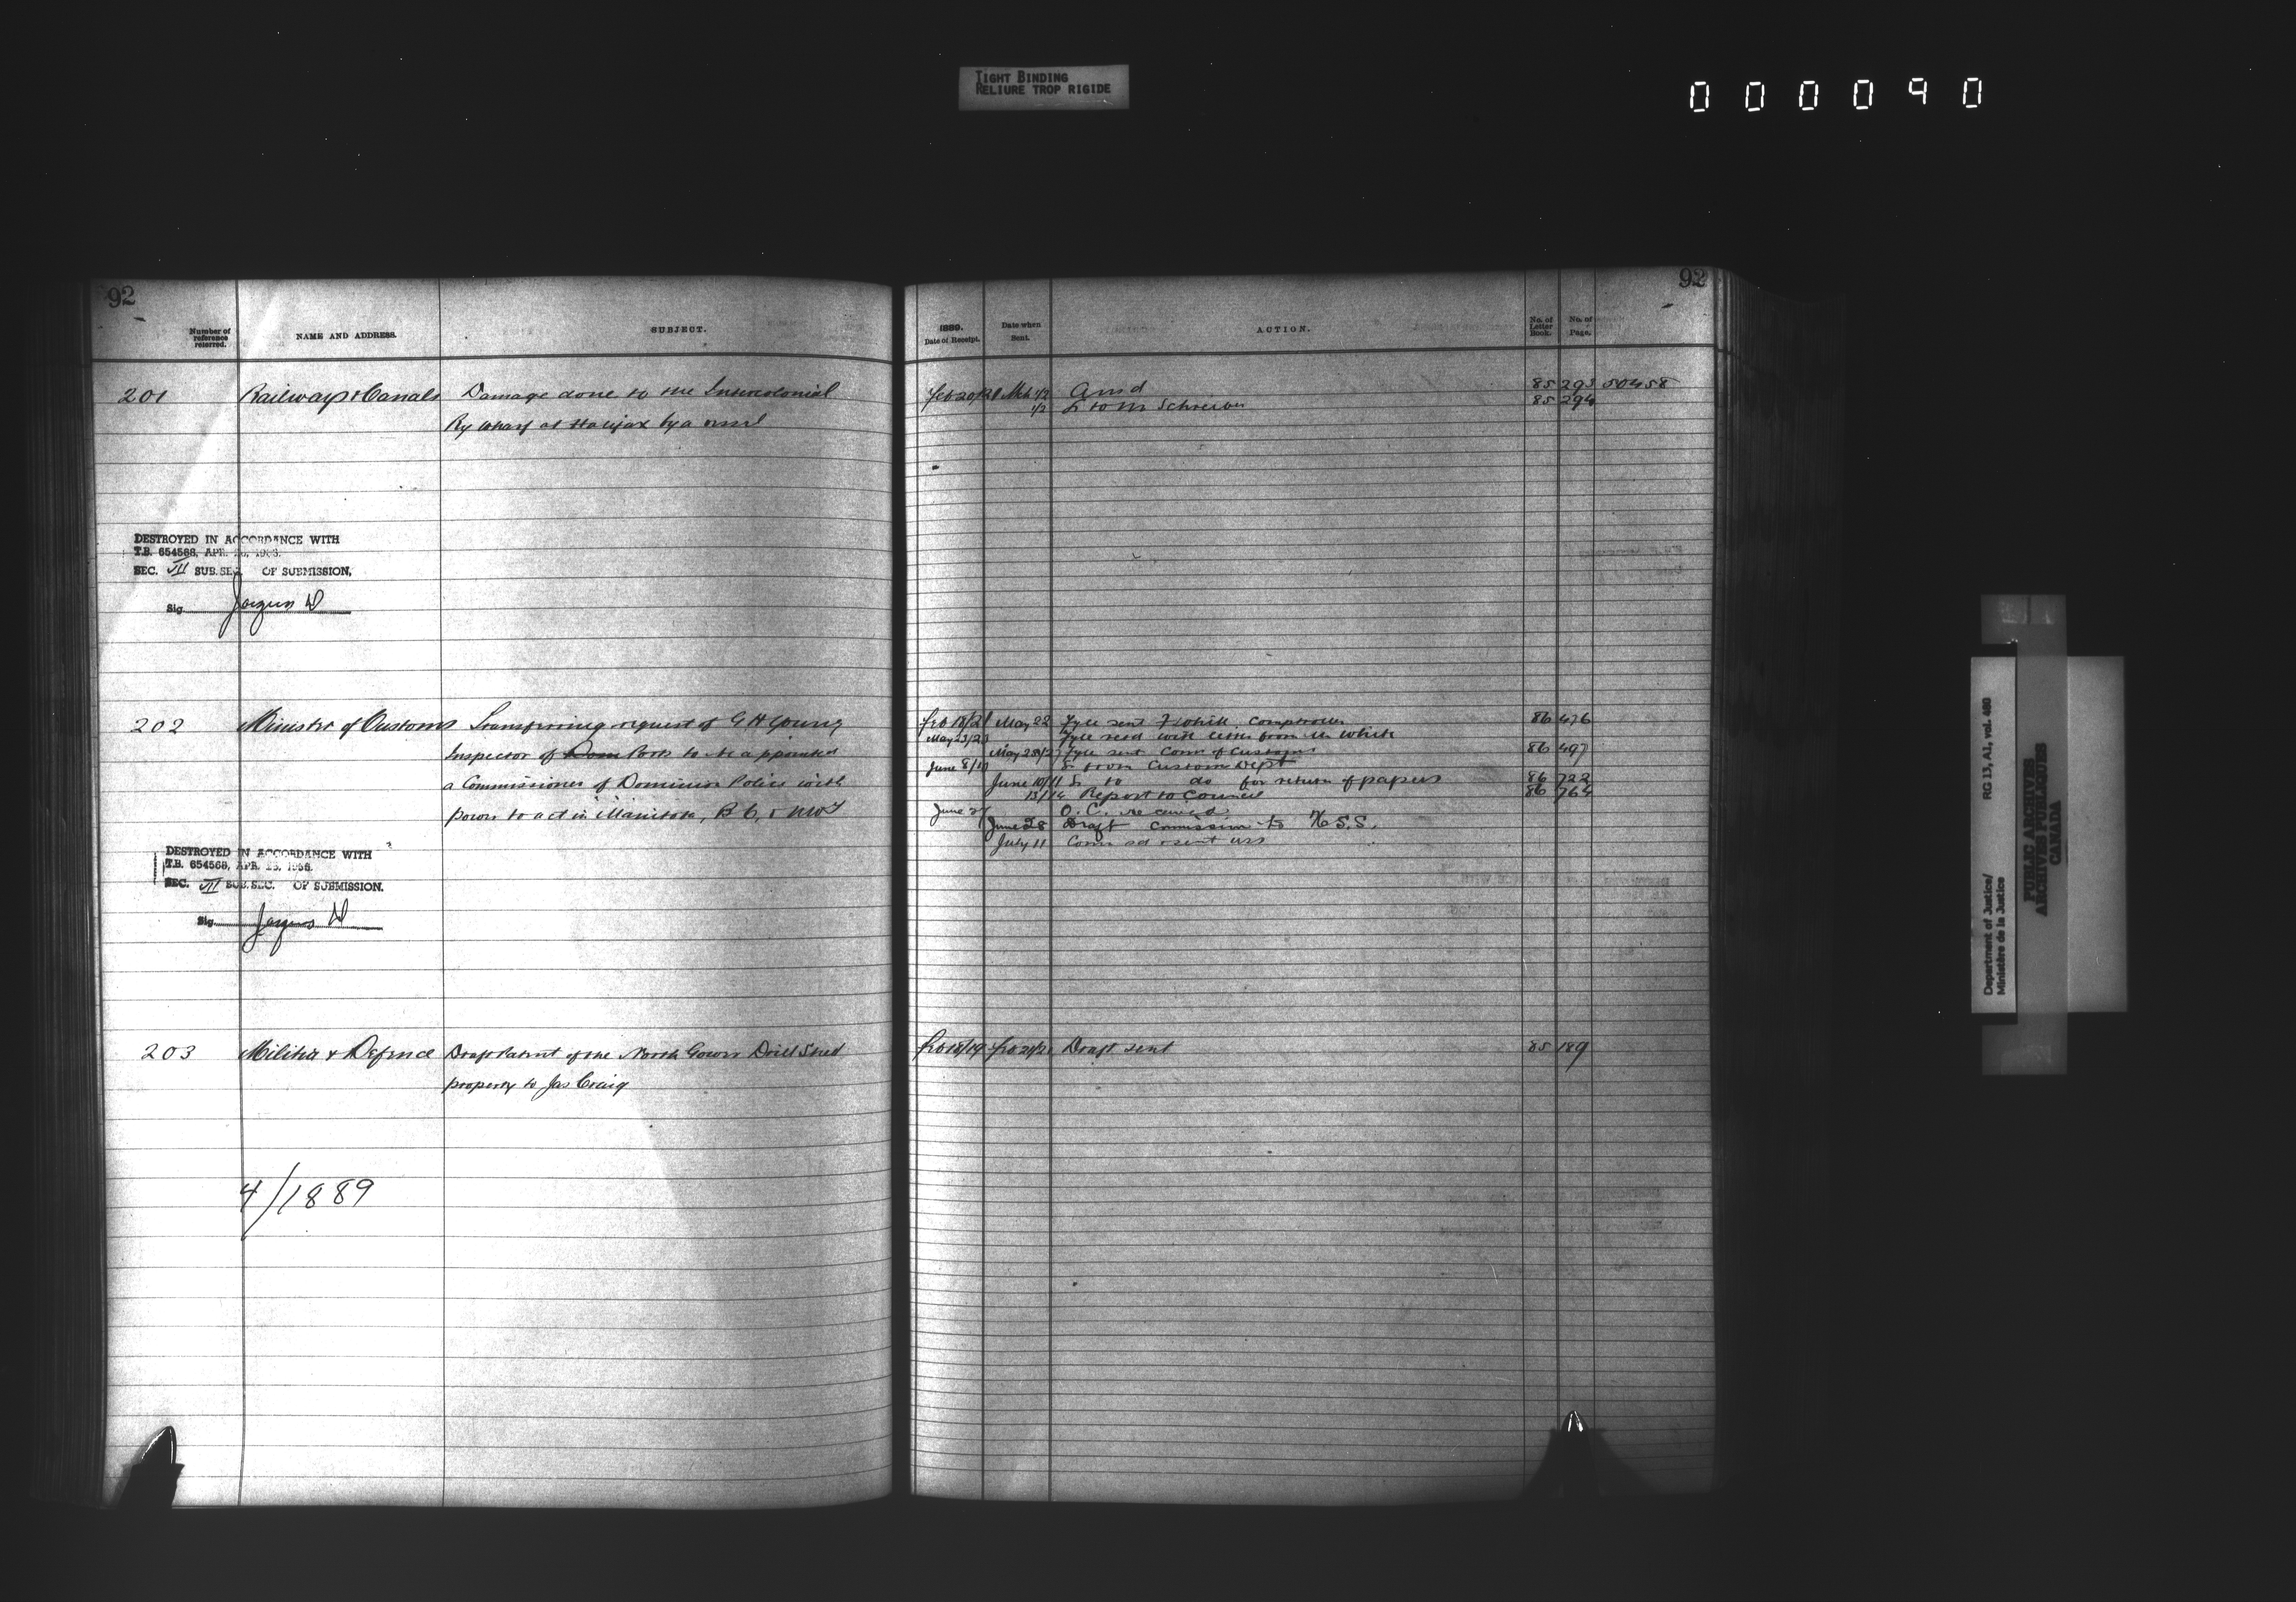 TIGHT BINDING
RELIURE TROP RIGIDE
000090
92
Number of reference referred.
NAME AND ADDRESS.
SUBJECT.
201 Railways & Canals Damage done to the Intercolonial
Ry Wharf at Halifax by a vessel
DESTROYED IN ACCORDANCE WITH
T.B. 654568, APR. 26, 1966.
SEC. VII SUB. SEC. OF SUBMISSION,
Sig.
202 Minister of Customs Transferring request of G H Young
Inspector of Dom Ports to be appointed
a Commissioner of Dominion Police with
power to act in Manitoba, B C, & NWT
DESTROYED IN ACCORDANCE WITH
T.B. 654568, APR. 26, 1966.
SEC. VII SUB. SEC. OF SUBMISSION.
Sig.
203 Militia & Defence Draft Patent of the North Gower Drill Shed
property to Jas Craig
4/1889
92
1889.
Date of Receipt.
Date when Sent.
ACTION.
No. of Letter Book.
No. of Page.
Feb 20/21 Mch 1/2 Ansd 85 293 50458
1/2 L to Mr Schreiber 85 294
Feb 18/21 May 22 Fyle sent White, Comptroller 86 476
May 23/23 Fyle recd with letter from Mr White
May 23/2 Fyle sent Comr of Customs 86 497
June 8/10 L from Customs Dept
June 10/11 L to do for return of papers 86 722
13/14 Report to Council 86 764
June 27 O. C. received
June 28 Draft Commission to H S.S.
July 11
Feb 18/19 Feb 21/21 Draft sent 85 189
Department of Justice/
Ministère de la Justice
RG 13, A1, vol. 480
PUBLIC ARCHIVES
ARCHIVES PUBLIQUES
CANADA